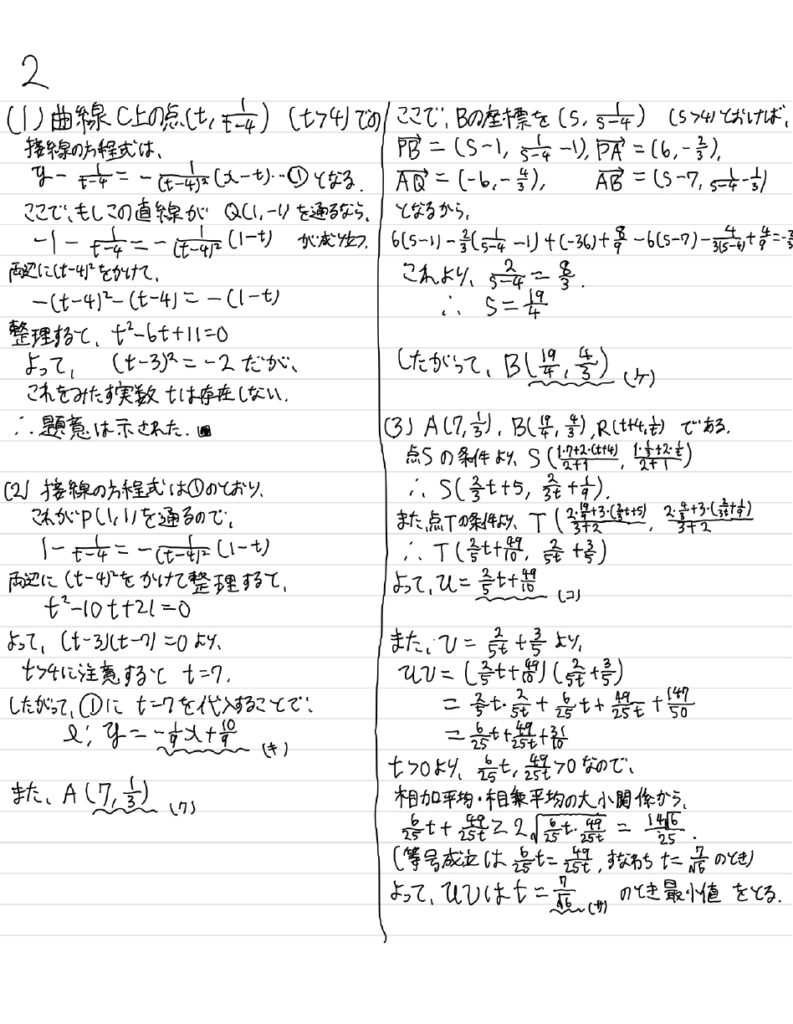 2
(1) 曲線 C上の点(t, 1/(t-4)) (t>4)での
接線の方程式は、
y - 1/(t-4) = - 1/(t-4)² (x-t)…① となる.
ここで、もしこの直線が Q(1,-1)を通るなら、
-1 - 1/(t-4) = - 1/(t-4)² (1-t) が成り立つ.
両辺に(t-4)²をかけて、
-(t-4)² - (t-4) = -(1-t)
整理すると、t²-6t+11=0
よって、(t-3)² = -2 だが、
これをみたす実数 t は存在しない.
∴ 題意は示された.
(2) 接線の方程式は①のとおり、
これがP(1,1)を通るので、
1 - 1/(t-4) = - 1/(t-4)² (1-t)
両辺に (t-4)²をかけて整理すると、
t²-10t+21=0
よって、(t-3)(t-7)=0より、
t>4に注意すると t=7.
したがって、①に t=7を代入することで、
l: y = -1/9 x + 10/9 (キ)
また、A(7, 1/3) (ク)
ここで、Bの座標を (s, 1/(s-4)) (s>4)とおけば、
PB→ = (s-1, 1/(s-4) -1), PA→ = (6, -2/3),
AQ→ = (-6, -4/3), AB→ = (s-7, 1/(s-4) - 1/3)
となるから、
6(s-1) - 2/3(1/(s-4) -1) + (-36) + 8/9 - 6(s-7) - 4/(3(s-4)) + 4/9 =
これより、2/(s-4) = 8/3.
∴ s = 19/4
したがって、B(19/4, 4/3) (ケ)
(3) A(7, 1/3), B(19/4, 4/3), R(t+4, 1/t) である.
点Sの条件より、S((1·7+2·(t+4))/(2+1), (1·1/3+2·1/t)/(2+1))
∴ S(2/3 t+5, 2/3t + 1/9).
また点Tの条件より、T((2·19/4+3·(2/3 t+5))/(3+2), (2·4/3+3·(2/3t+1/9))/(3+2))
∴ T(2/5 t + 49/10, 2/5t + 3/5)
よって、u = 2/5 t + 49/10 (コ)
また、v = 2/5t + 3/5 より、
uv = (2/5 t + 49/10)(2/5t + 3/5)
= 2/5 t · 2/5t + 6/25 t + 49/25t + 147/50
= 6/25 t + 49/25t + 31/10
t>0より、6/25 t, 49/25t >0 なので、
相加平均・相乗平均の大小関係から、
6/25 t + 49/25t ≧ 2√(6/25 t · 49/25t) = 14√6/25.
(等号成立は 6/25 t = 49/25t, すなわち t = 7/√6 のとき)
よって、uvは t = 7/√6 (サ) のとき最小値をとる.